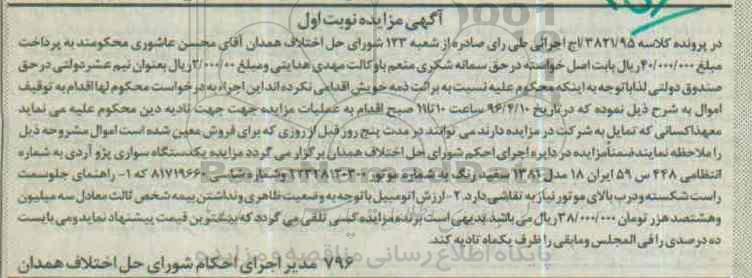 آگهی مزایده نوبت اول
در پرونده کلاسه ۳۸۲۱/۹۵/اج اجرائی طی رای صادره از شعبه ۱۲۳ شورای حل اختلاف همدان آقای محسن عاشوری محکومند به پرداخت
مبلغ ۴۰/۰۰۰/۰۰۰ ریال بابت اصل خواسته در حق سمانه شکری منعم با وکالت مهدی هدایتی و مبلغ ۲/۰۰۰/۰۰۰ ریال بعنوان نیم عشر دولتی در حق
صندوق دولتی لذا باتوجه به اینکه محکوم علیه نسبت به برائت ذمه خویش اقدامی نکرده اند این اجراء به درخواست محکوم لها اقدام به توقیف
اموال به شرح ذیل نموده که در تاریخ ۹۶/۴/۱۰ ساعت ۱۰ تا ۱۱ صبح اقدام به عملیات مزایده جهت جهت تادیه دین محکوم علیه می نماید
معهذا کسانی که تمایل به شرکت در مزایده دارند می توانند در مدت پنج روز قبل از روزی که برای فروش معین شده است اموال مشروحه ذیل
را ملاحظه نمایند ضمنا مزایده در دایره اجرای احکم شورای حل اختلاف همدان برگزار می گردد مزایده یکدستگاه سواری پژو آردی به شماره
انتظامی ۴۴۸ س ۵۹ ایران ۱۸ مدل ۱۳۸۱ سفید رنگ به شماره موتور و شماره شاسی ۸۱۷۱۹۶۶۰ که ۱- راهنمای جلو سمت
راست شکسته و درب بالای موتور نیاز به نقاشی دارد. ۲- ارزش اتومبیل با توجه به وضعیت ظاهری و نداشتن بیمه شخص ثالث معادل سه میلیون
و هشتصد هزر تومان ۳۸/۰۰۰/۰۰۰ ریال می باشد بدیهی است برنده مزایده کسی تلقی می گردد که بیشترین قیمت پیشنهاد نماید و می بایست
ده درصد ی را فی المجلس و مابقی را ظرف یکماه تادیه کند.
۷۹۶ مدیر اجرای احکام شورای حل اختلاف همدان
پایگاه اطلاع رسانی مناقصه و مزایده